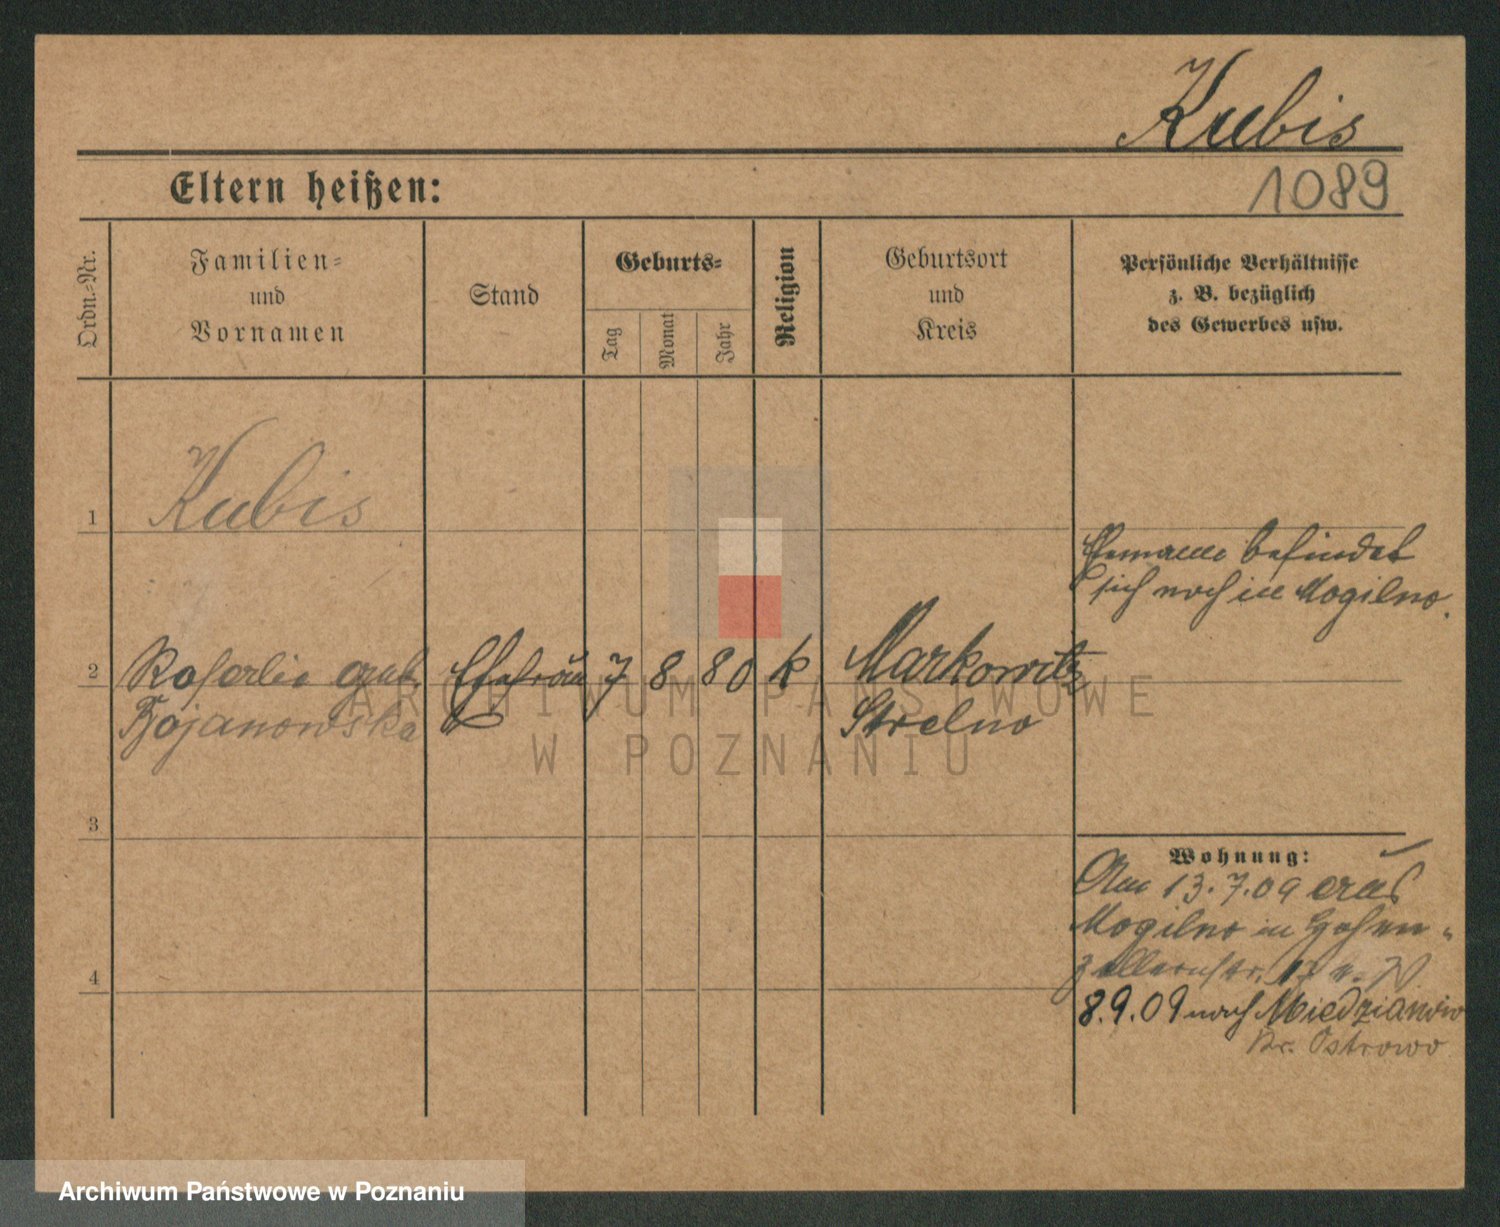 Kubis
Eltern heißen:
1089
Ordn.-Nr.
Familien-
und
Vornamen
Stand
Geburts-
Tag
Monat
Jahr
Religion
Geburtsort
und
Kreis
Persönliche Verhältnisse
z. B. bezüglich
des Gewerbes usw.
1
Kubis
Ehemann befindet
sich noch in Mogilno.
2
Rosalie geb.
Bojanowska
Ehefrau
7
8
80
k
Markowitz
Strelno
3
Wohnung:
Am 13.7.09 aus
Mogilno in Hohen-
zollernstr. 17
4
8.9.09 nach Miedzianow
Kr. Ostrowo
ARCHIWUM PAŃSTWOWE
W POZNANIU
Archiwum Państwowe w Poznaniu